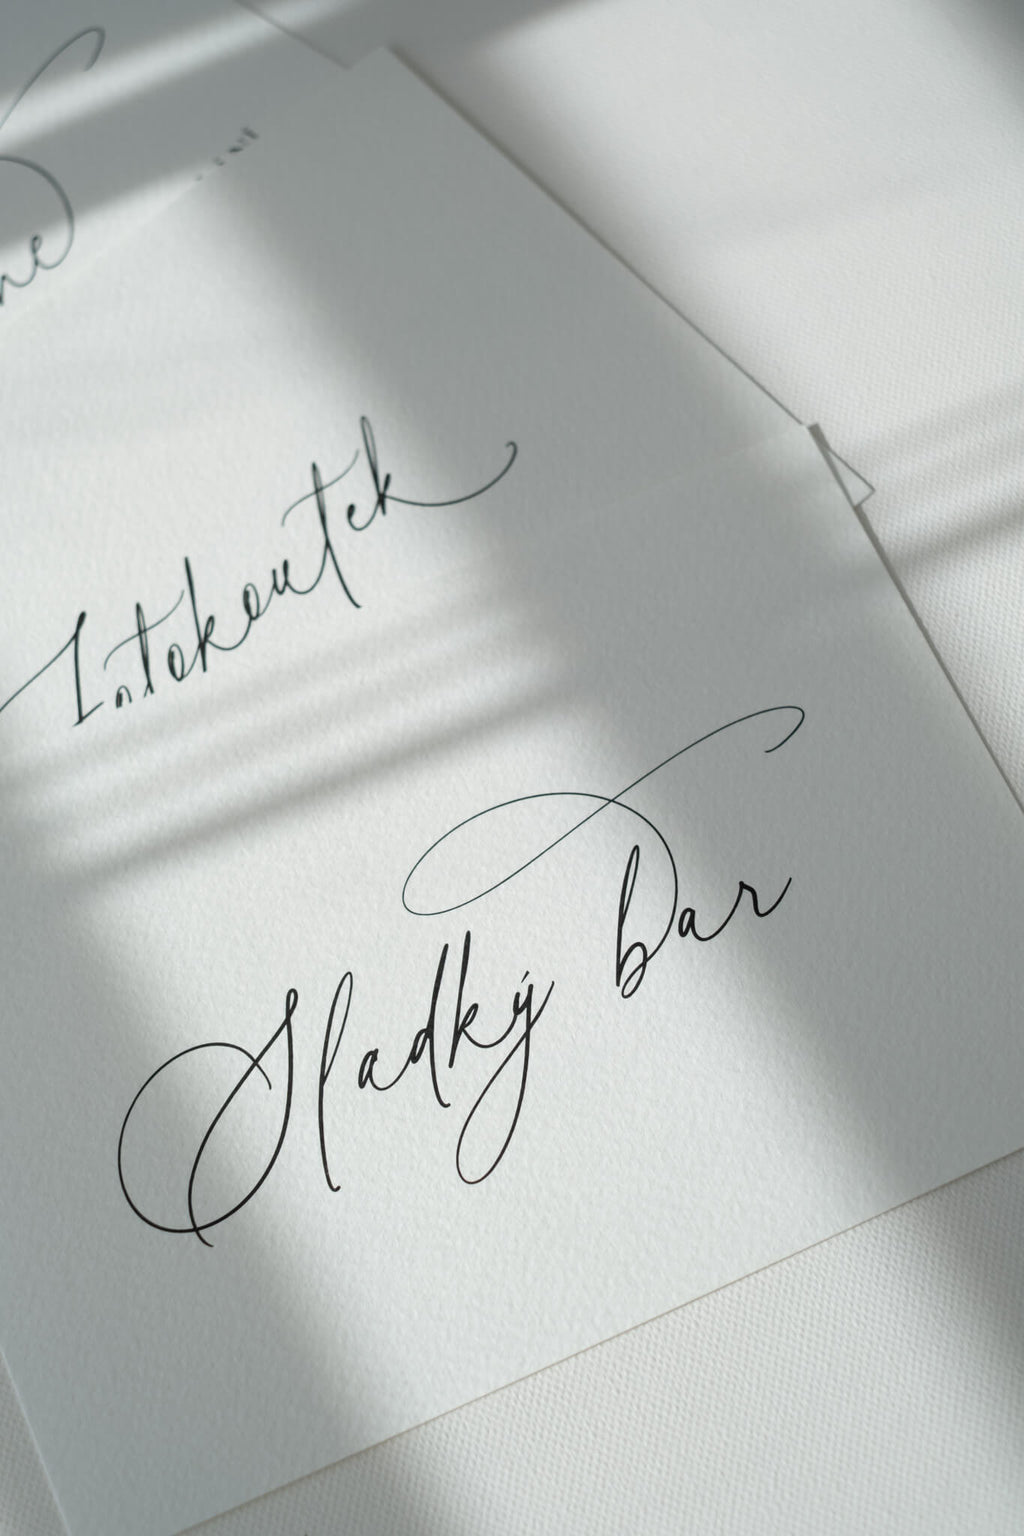 Fotokoutek
Sladký bar